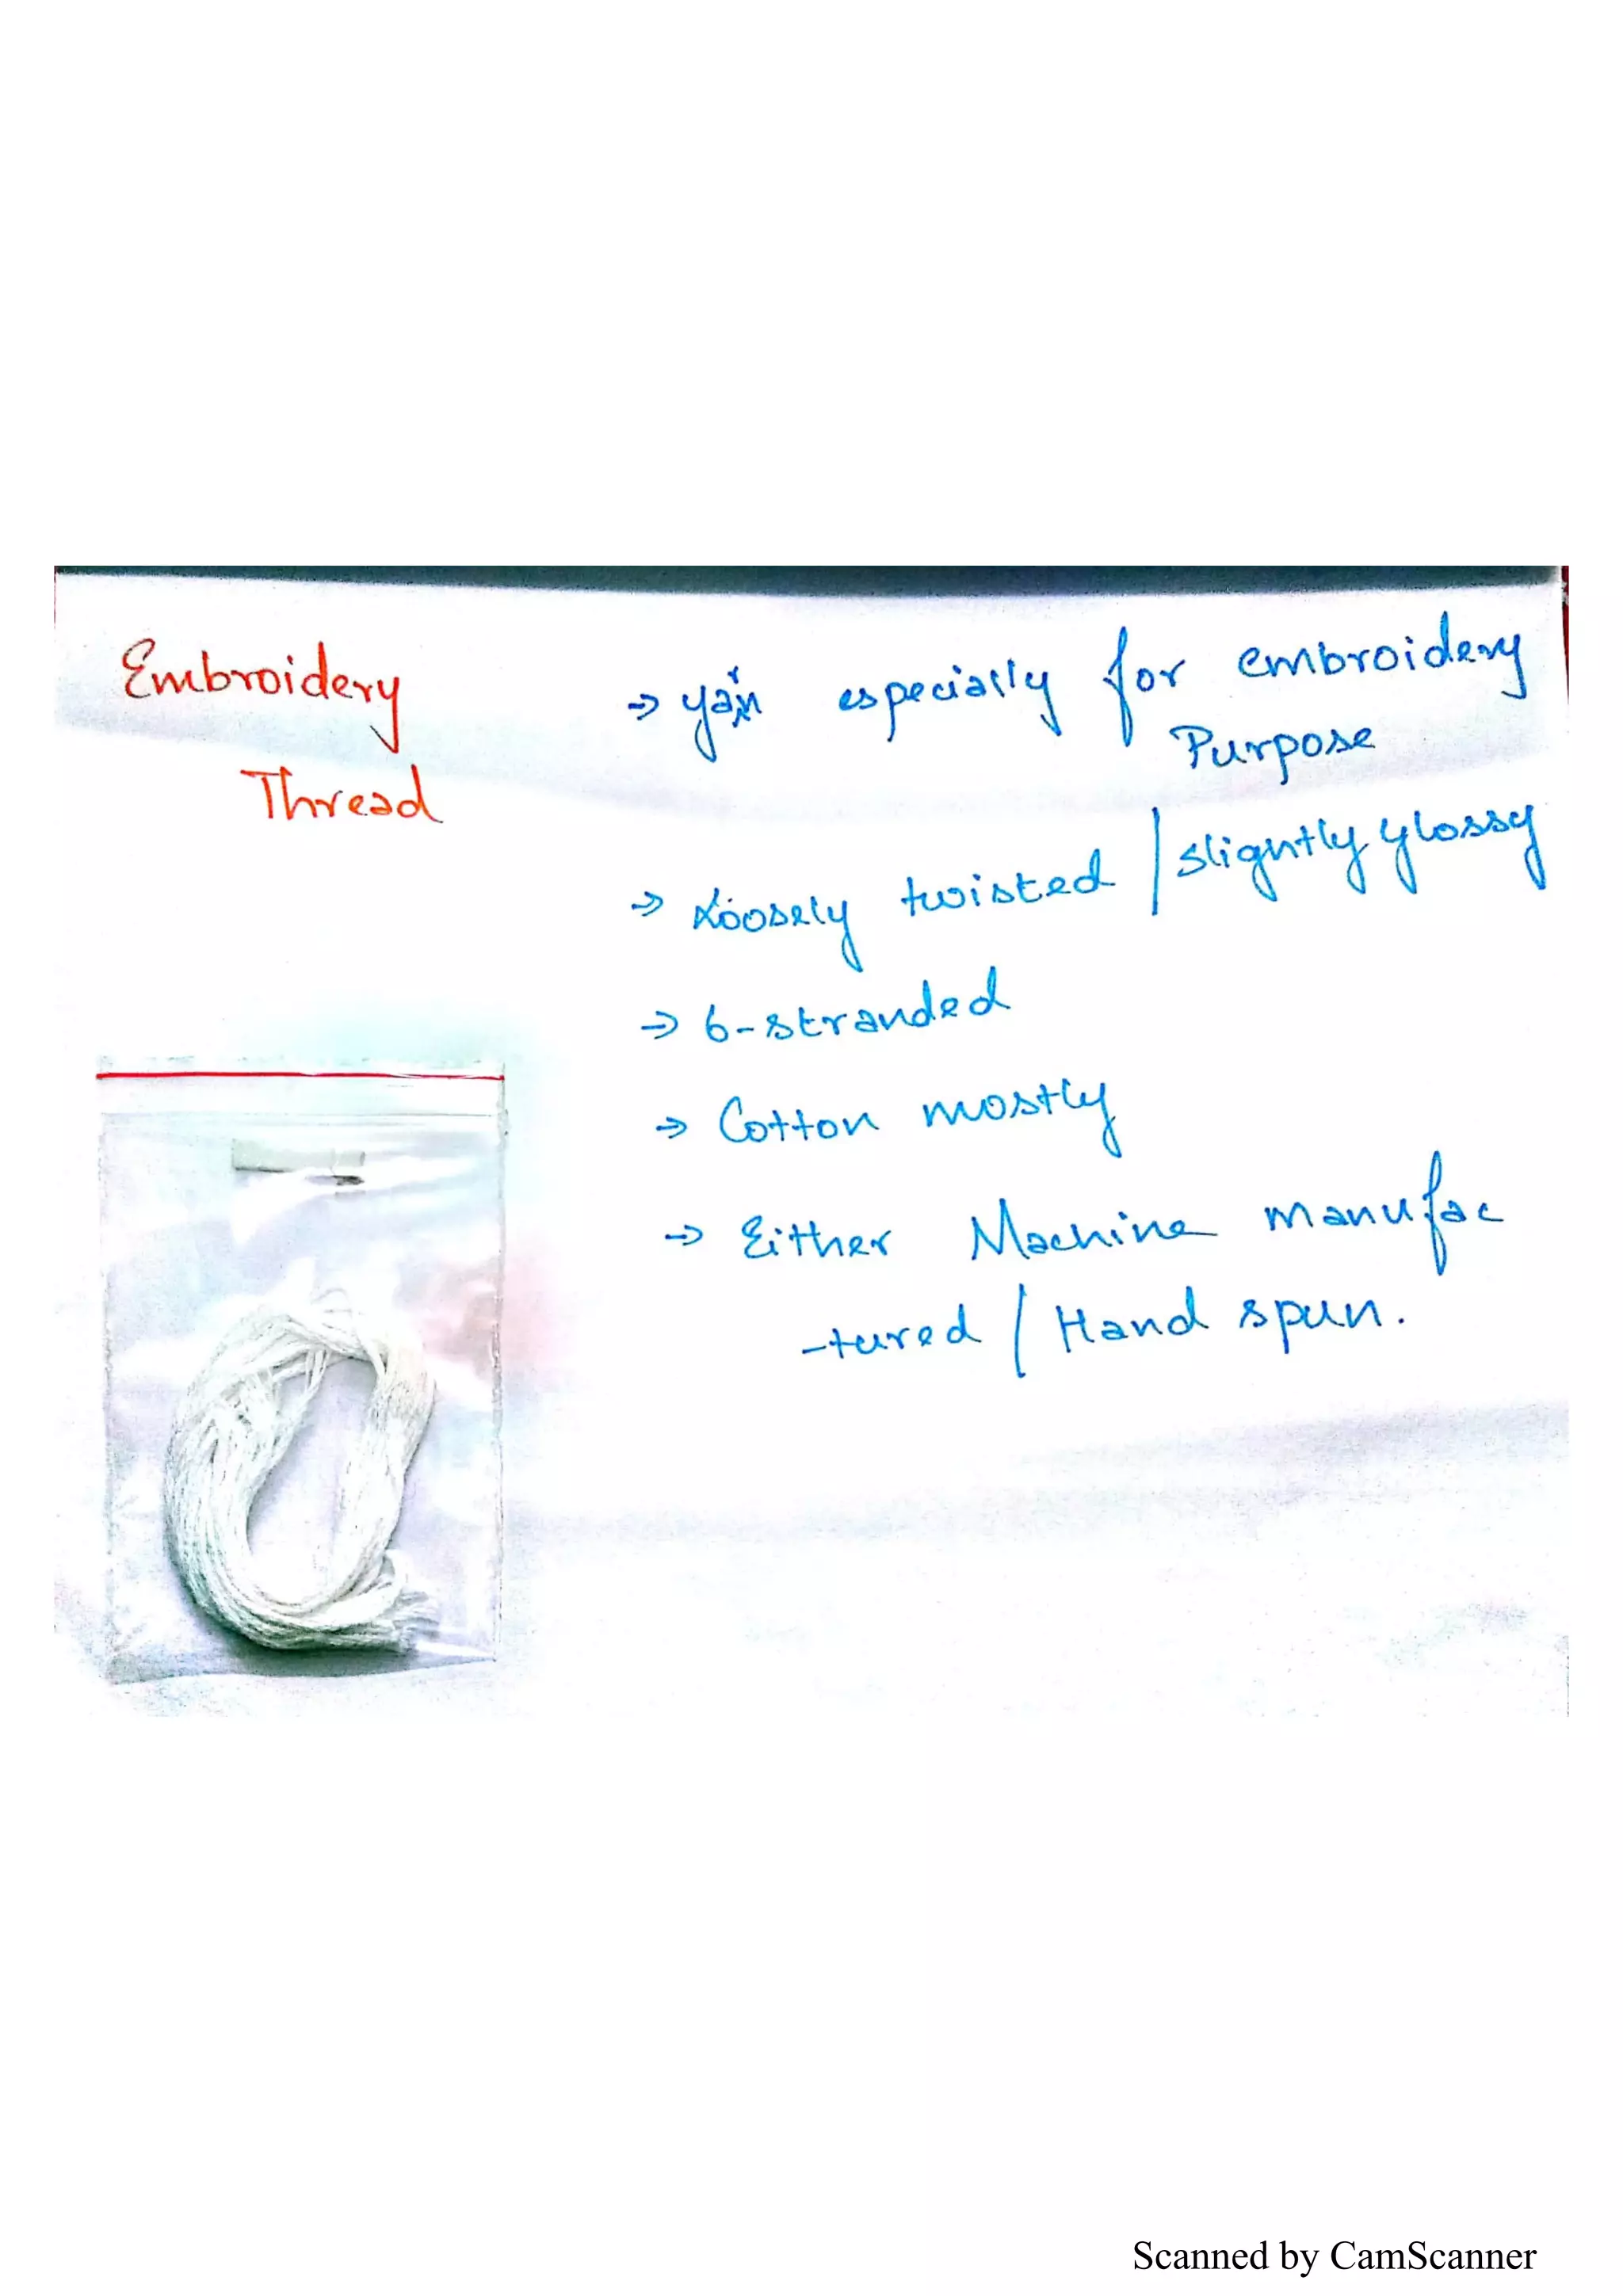 Embroidery
Thread
→ yarn especially for embroidery
Purpose
→ Loosely twisted / slightly glossy
→ 6-stranded
→ Cotton mostly
→ Either Machine manufac
-tured / Hand spun.
Scanned by CamScanner